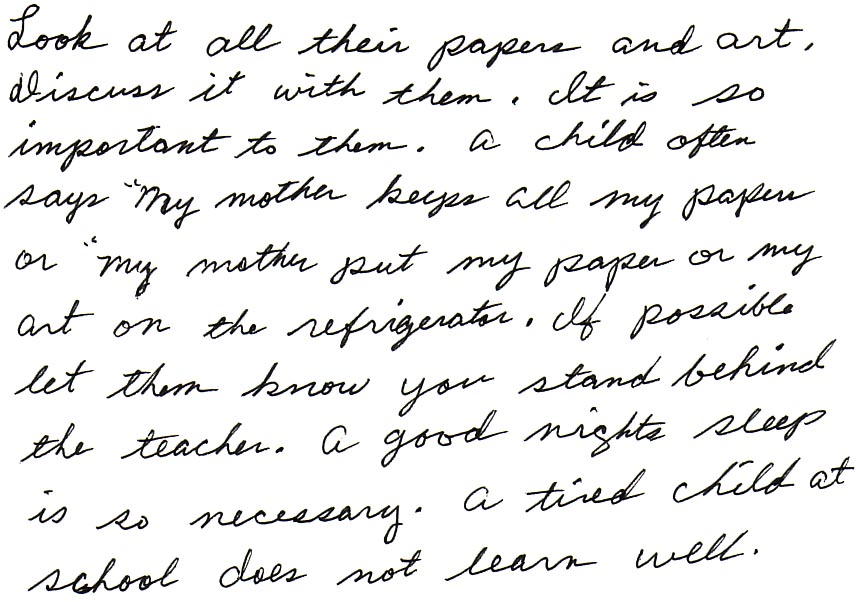 Look at all their papers and art.
Discuss it with them. It is so
important to them. A child often
says "My mother keeps all my papers
or "My mother put my paper or my
art on the refrigerator. If possible
let them know you stand behind
the teacher. A good nights sleep
is so necessary. A tired child at
school does not learn well.